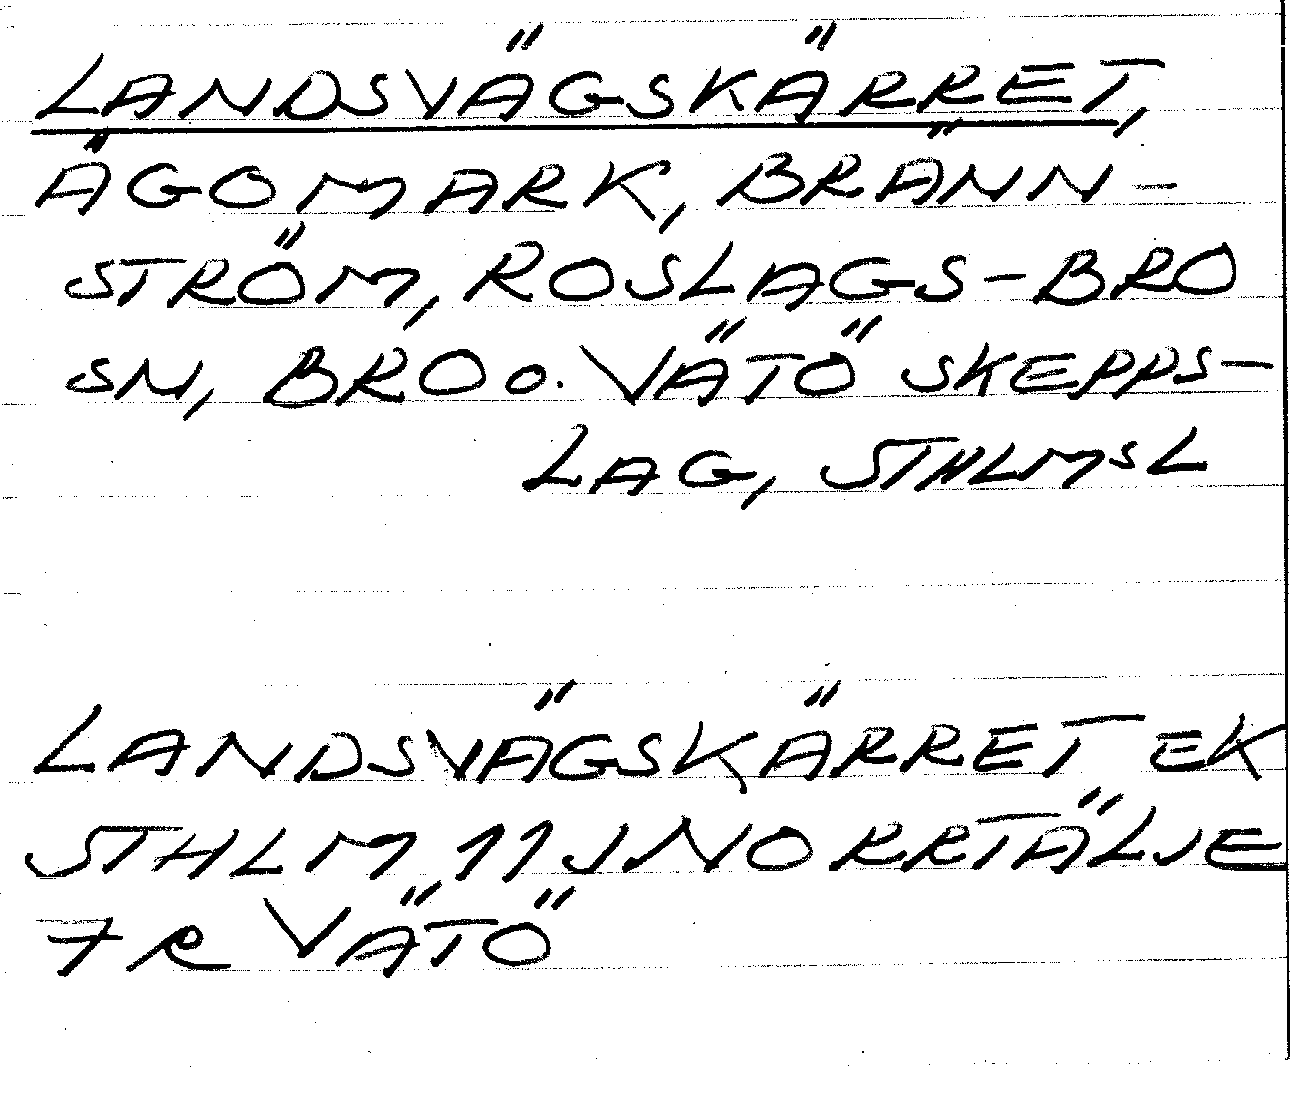 LANDSVÄGSKÄRRET,
ÄGOMARK, BRÄNN-
STRÖM, ROSLAGS-BRO
SN, BRO O. VÄTÖ SKEPPS-
LAG, STHLMSL
LANDSVÄGSKÄRRET EK
STHLM 11J NORRTÄLJE
7R VÄTÖ